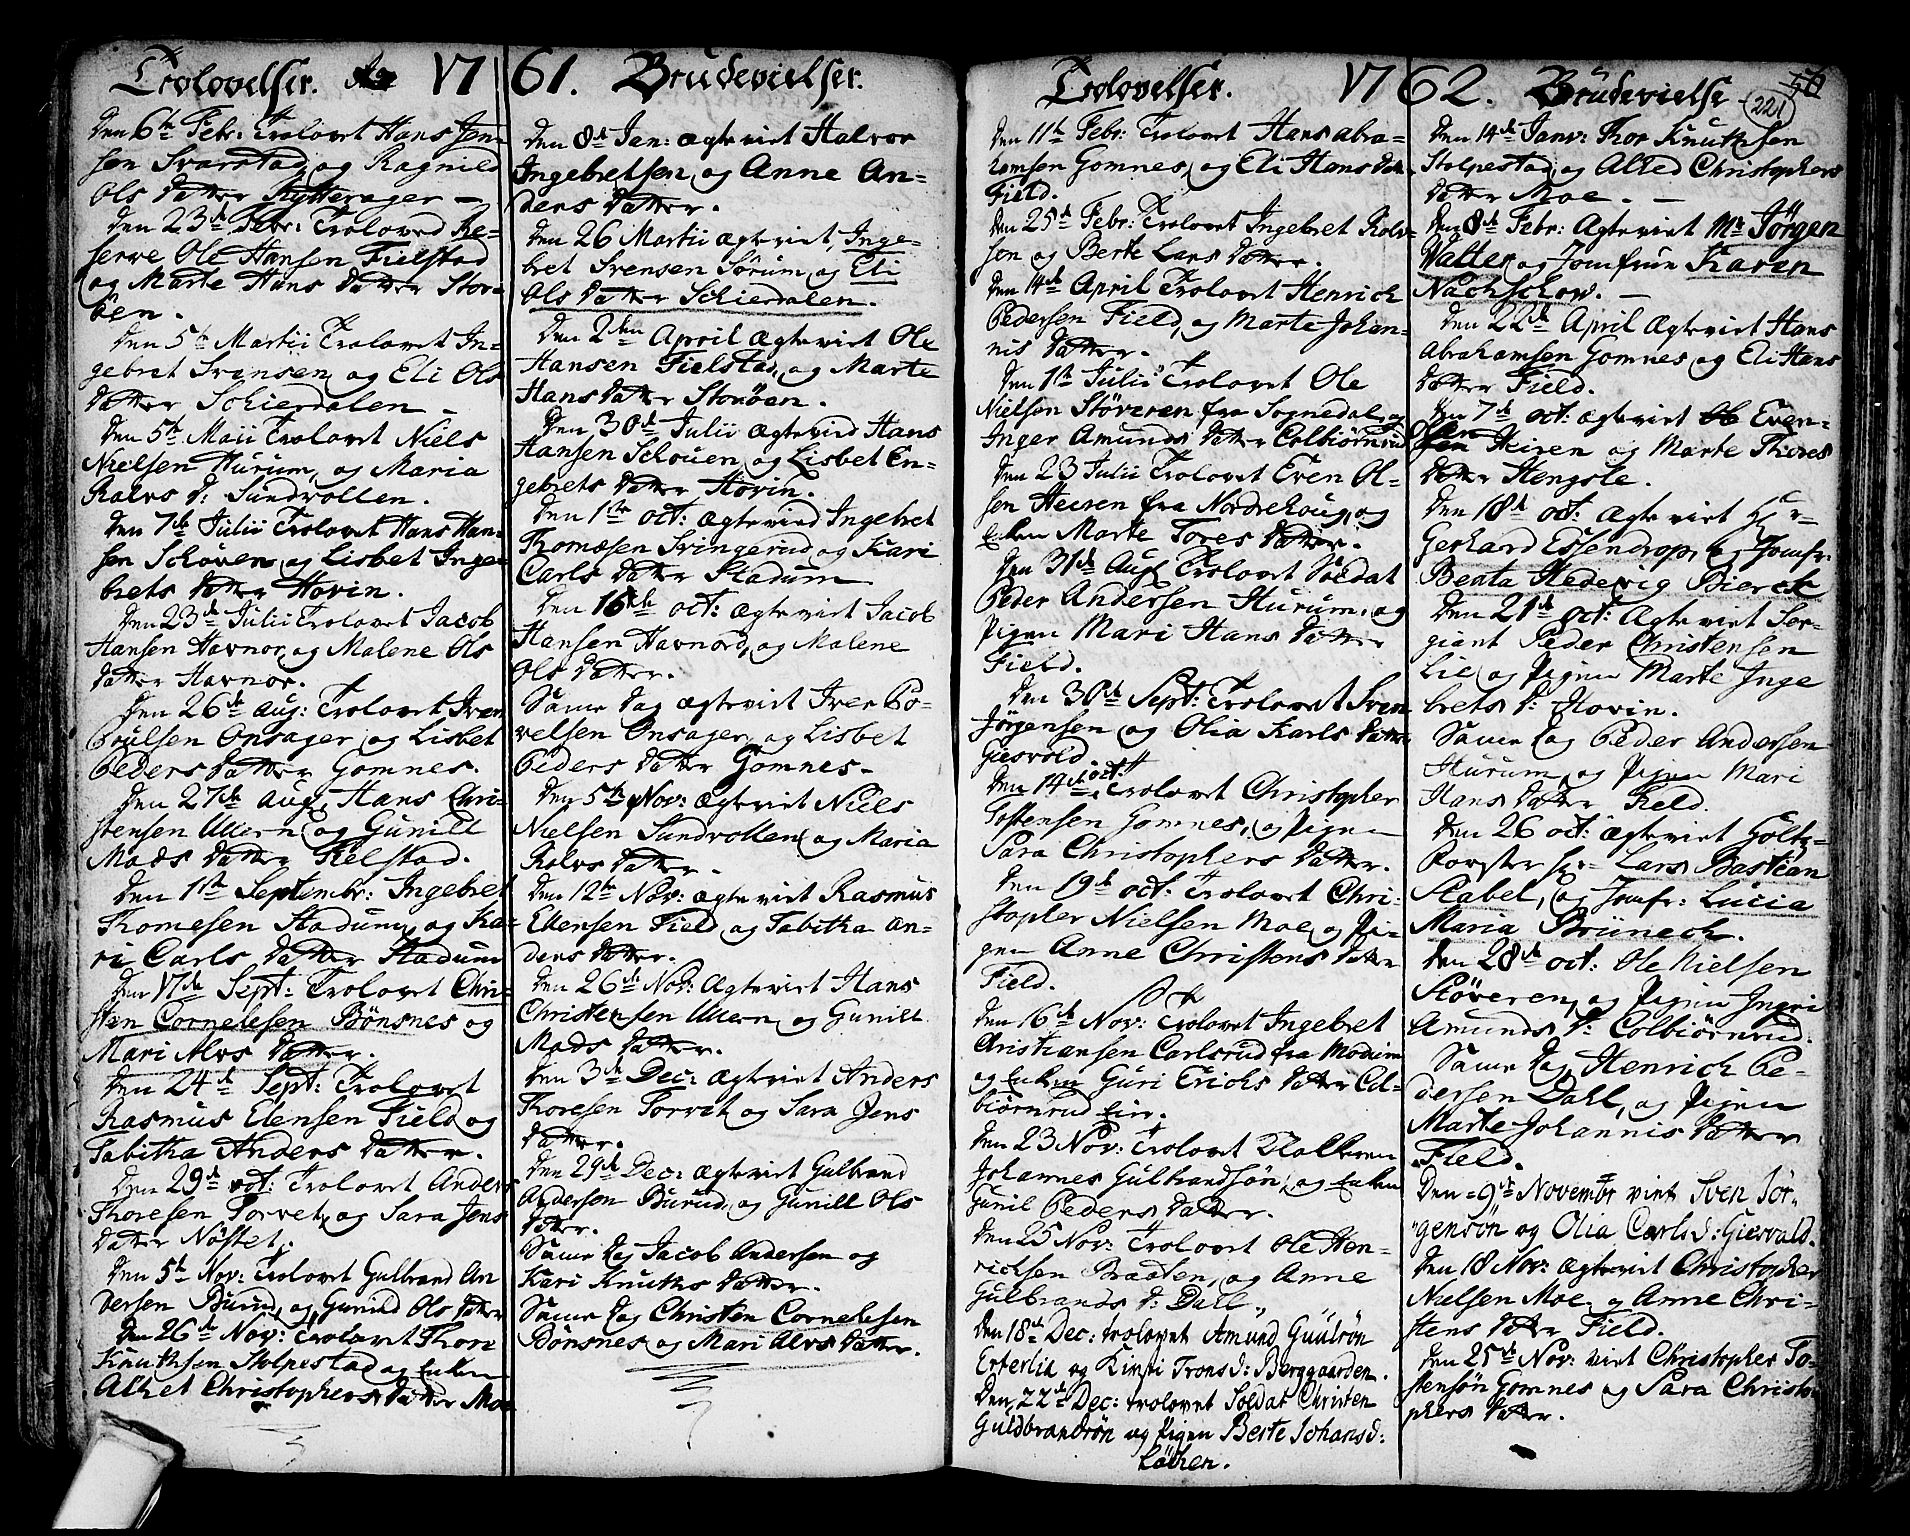 Trolovelser. 1761. Brudevielser.
Den 6te Febr: Trolovet Hans Jen-
sen Svarstad og Ragnild
Ols Datter Hytterager –
Den 23de Febr: Troloved Re-
serve Ole Hansen Fielstad
og Marte Hans Datter Stor-
öen.
Den 5te Martii Trolovet In-
gebret Svensen og Eli Ols
Datter Schierdalen –
Den 5te Maii Trolovet Niels
Nielsen Hurum, og Maria
Ralvs D: Sundvollen.
Den 7de Julii Trolovet Hans Han-
sen Schouen og Lisbet Inge-
brets Datter Hovin.
Den 23de Julii Trolovet Jacob
Hansen Havnor og Malene Ols
Datter Havnor.
Den 26de Aug: Trolovet Iver
Poulsen Onsager og Lisbet
Peders Datter Gomnes.
Den 27de Aug, Hans Chri-
stensen Ullern og Gunill
Mads Datter Fielstad.
Den 1ste Septembr: Ingebret
Thomesen Stadum, og Ka-
ri Carls Datter Stadum
Den 17de Sept: Trolovet Chri-
sten Cornelesen Bönsnes og
Mari Alvs Datter.
Den 24de Sept: Trolovet
Rasmus Elensen Field og
Tabitha Anders Datter.
Den 29de oct: Trolovet Anders
Thoresen Torvet, og Sara Jens
Datter Nöstet.
Den 5te Nov: Trolovet Gulbrand An-
dersen Burud, og Gunild Ols Datter
Den 26de Nov: Trolovet Thore
Knuthsen Stolpestad og Enken
Alhet Christophers Datter Moe
Den 8de Jan: ægtevirt Halvor
Ingebretsen og Anne An-
ders Datter.
Den 26 Martii ægtevirt, Inge-
bret Svensen Sörum og Eli
Ols Datter Schierdalen.
Den 2den April ægtevirt Ole
Hansen Fielstad, og Marte
Hans Datter Storöen.
Den 30de Julii ægtevied Hans
Hansen Schouen og Lisbet En-
gebrets Datter Hovin.
Den 1ste oct: ægtevied Ingebret
Thomæsen Svingerud og Kari
Carls Datter Stadum
Den 16de oct: ægtevirt Jacob
Hansen Havnord, og Malene
Ols Datter.
Same Dag ægtevirt Iver Po-
velsen Onsager, og Lisbet
Peders Datter Gomnes –
Den 5te Nov: ægtevirt Niels
Nielsen Sundvollen og Maria
Ralvs Datter.
Den 12te Nov: ægtevirt Rasmus
Ellensen Field og Tabitha An-
ders Datter.
Den 26de Nov: ægtevirt Hans
Christensen Ullern og Gunill
Mads Datter.
Den 3de Dec: ægtevirt Anders
Thoresen Torvet og Sara Jens
Datter.
Den 29de Dec: ægtevirt Gulbrand
Andersen Burud, og Gunill Ols
Datter.
Same Dag Jacob Andersen og
Kari Knuths Datter.
Same Dag Christen Cornelesen
Bönsnes og Mari Alvs Datter.
Trolovelser. 1762. Brudevielse 56
221
Den 11te Febr: Trolovet Hans Abra-
hamsen Gomnes, og Eli Hans Datter
Field.
Den 25de Febr: Trolovet Ingebret Rolv-
sen og Berte Lars Datter.
Den 14de April Trolovet Henrich
Pedersen Field, og Marte Johan-
nis Datter.
Den 1ste Julii Trolovet Ole
Nielsen Stöveren fra Sognedal, og
Inger Amunds Datter Colbiörnrud
Den 23 Julii Trolovet Even Ol-
sen Heieren fra Nordrehoug, og
Enken Marte Tores Datter.
Den 31de Aug Trolovet Soldat
Peder Andersen Hurum, og
Pigen Mari Hans Datter
Field.
Den 30de Sept: Trolovet Sven
Jörgensen og Olia Karls Datter
Giesvold
Den 14de oct: Trolovet Christopher
Tostensen Gomnes, og Pigen
Sara Christophers Datter.
Den 19de oct: Trolovet Chri-
stopher Nielsen Moe og Pi-
gen Anne Christens Datter
Field.
Den 16de Nov: Trolovet Ingebret
Christiansen Carlsrud fra Modum
og Enken Guri Erichs Datter Col-
biörnrud Eier.
Den 23 Nov: Trolovet
Johannes Gulbrandsön, og Enken
Gunil Peders Datter.
Den 25 Nov: Trolovet Ole Hen-
richsen Braaten, og Anne
Gulbrands D: Dall.
Den 18de Dec: trolovet Amund Guulsön
Erterlia og Kirsti Trons D: Berggaarden.
Den 22de Dec: trolovet Soldat Christen
Guldbrandsön og Pigen Berte Johans D:
Löchen.
Den 14de Janv: Thor Knuthsen
Stolpestad og Alhed Christophers
Datter Moe. –
Den 8de Febr: Ægtevirt Mr Jörgen
Walter og Jomfrue Karen
Nachschow. –
Den 22de April Ægtevirt Hans
Abrahamsen Gomnes og Eli Hans
Datter Field.
Den 7de oct: ægtevirt Even
Olsen Heieren og Marte Thores
Datter Hengsle.
Den 18de oct: ægtevirt Hr-
Gerhard Essendrop, og Jomfr:
Benta Hedevig Bierck
Den 21de oct: Ægtevirt Ser-
giant Peder Christensen
Lie, og Pigen Marte Inge
brets D: Hovin.
Same Dag Peder Anderssen
Hurum, og Pigen Mari
Hans Datter Field.
Den 26 oct: ægtevirt Holtz-
Forster Hr- Lars Bastian
Stabel, og Jomfr: Lucia
Maria Brünech.
Den 28de oct: Ole Nielsen
Stöveren, og Pigen Ingri
Amunds D: Colbiörnrud.
Same Dag Henrich Pe-
dersen Dall, og Pigen
Marte Johannis Datter
Field.
Den 9de Novembr virt Sven Jör-
gensön og Olia Carls D: Giesvald.
Den 18 Nov: ægtevirt Christopher
Nielsen Moe og Anne Chri-
stens Datter Field.
Den 25de Nov: virt Christopher To-
stensön Gomnes og Sara Christo
phers Datter.